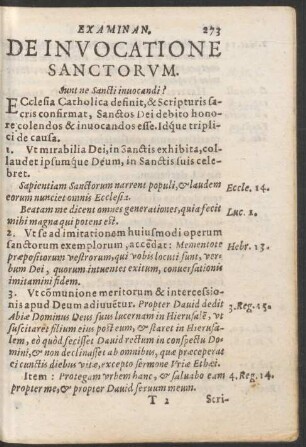 EXAMINAN. 273
DE INVOCATIONE
SANCTORVM.
Sunt ne Sancti invocandi?
ECclesia Catholica definit, & Scripturis sa-
cris confirmat, Sanctos Dei debito hono-
re colendos & inuocandos esse. Idq́ue tripli-
ci de causa.
1. Vt mirabilia Dei, in Sanctis exhibita, col-
laudet ipsumque Deum, in Sanctis suis cele-
bret.
Sapientiam Sanctorum narrent populi, & laudem Eccle. 14.
eorum nunciet omnis Ecclesia.
Beatam me dicent omnes generationes, quia fecit Luc. 1.
mihi magna qui potens est.
2. Vt se ad imitationem huiusmodi operum
sanctorum exemplorum, accédat: Mementote Hebr. 13.
præpositorum vestrorum, qui vobis locuti sunt, ver-
bum Dei, quorum intuentes exitum, conuersationis
imitamini fidem.
3. Vt cōmunione meritorum & intercessio-
nis apud Deum adiuuetur. Propter Dauid dedit 3. Reg. 15.
Abiæ Dominus Deus suus lucernam in Hierusalē, vt
suscitaret filium eius post eum, & staret in Hierusa-
lem, eò quòd fecisset Dauid rectum in conspectu Do-
mini, & non declinasset ab omnibus, quæ præceperat
ei cunctis diebus vitæ, excepto sermone Vriæ Ethæi.
Item: Protegam vrbem hanc, & saluabo eam 4. Reg. 14.
propter me, & propter Dauid seruum meum.
T 2 Scri-